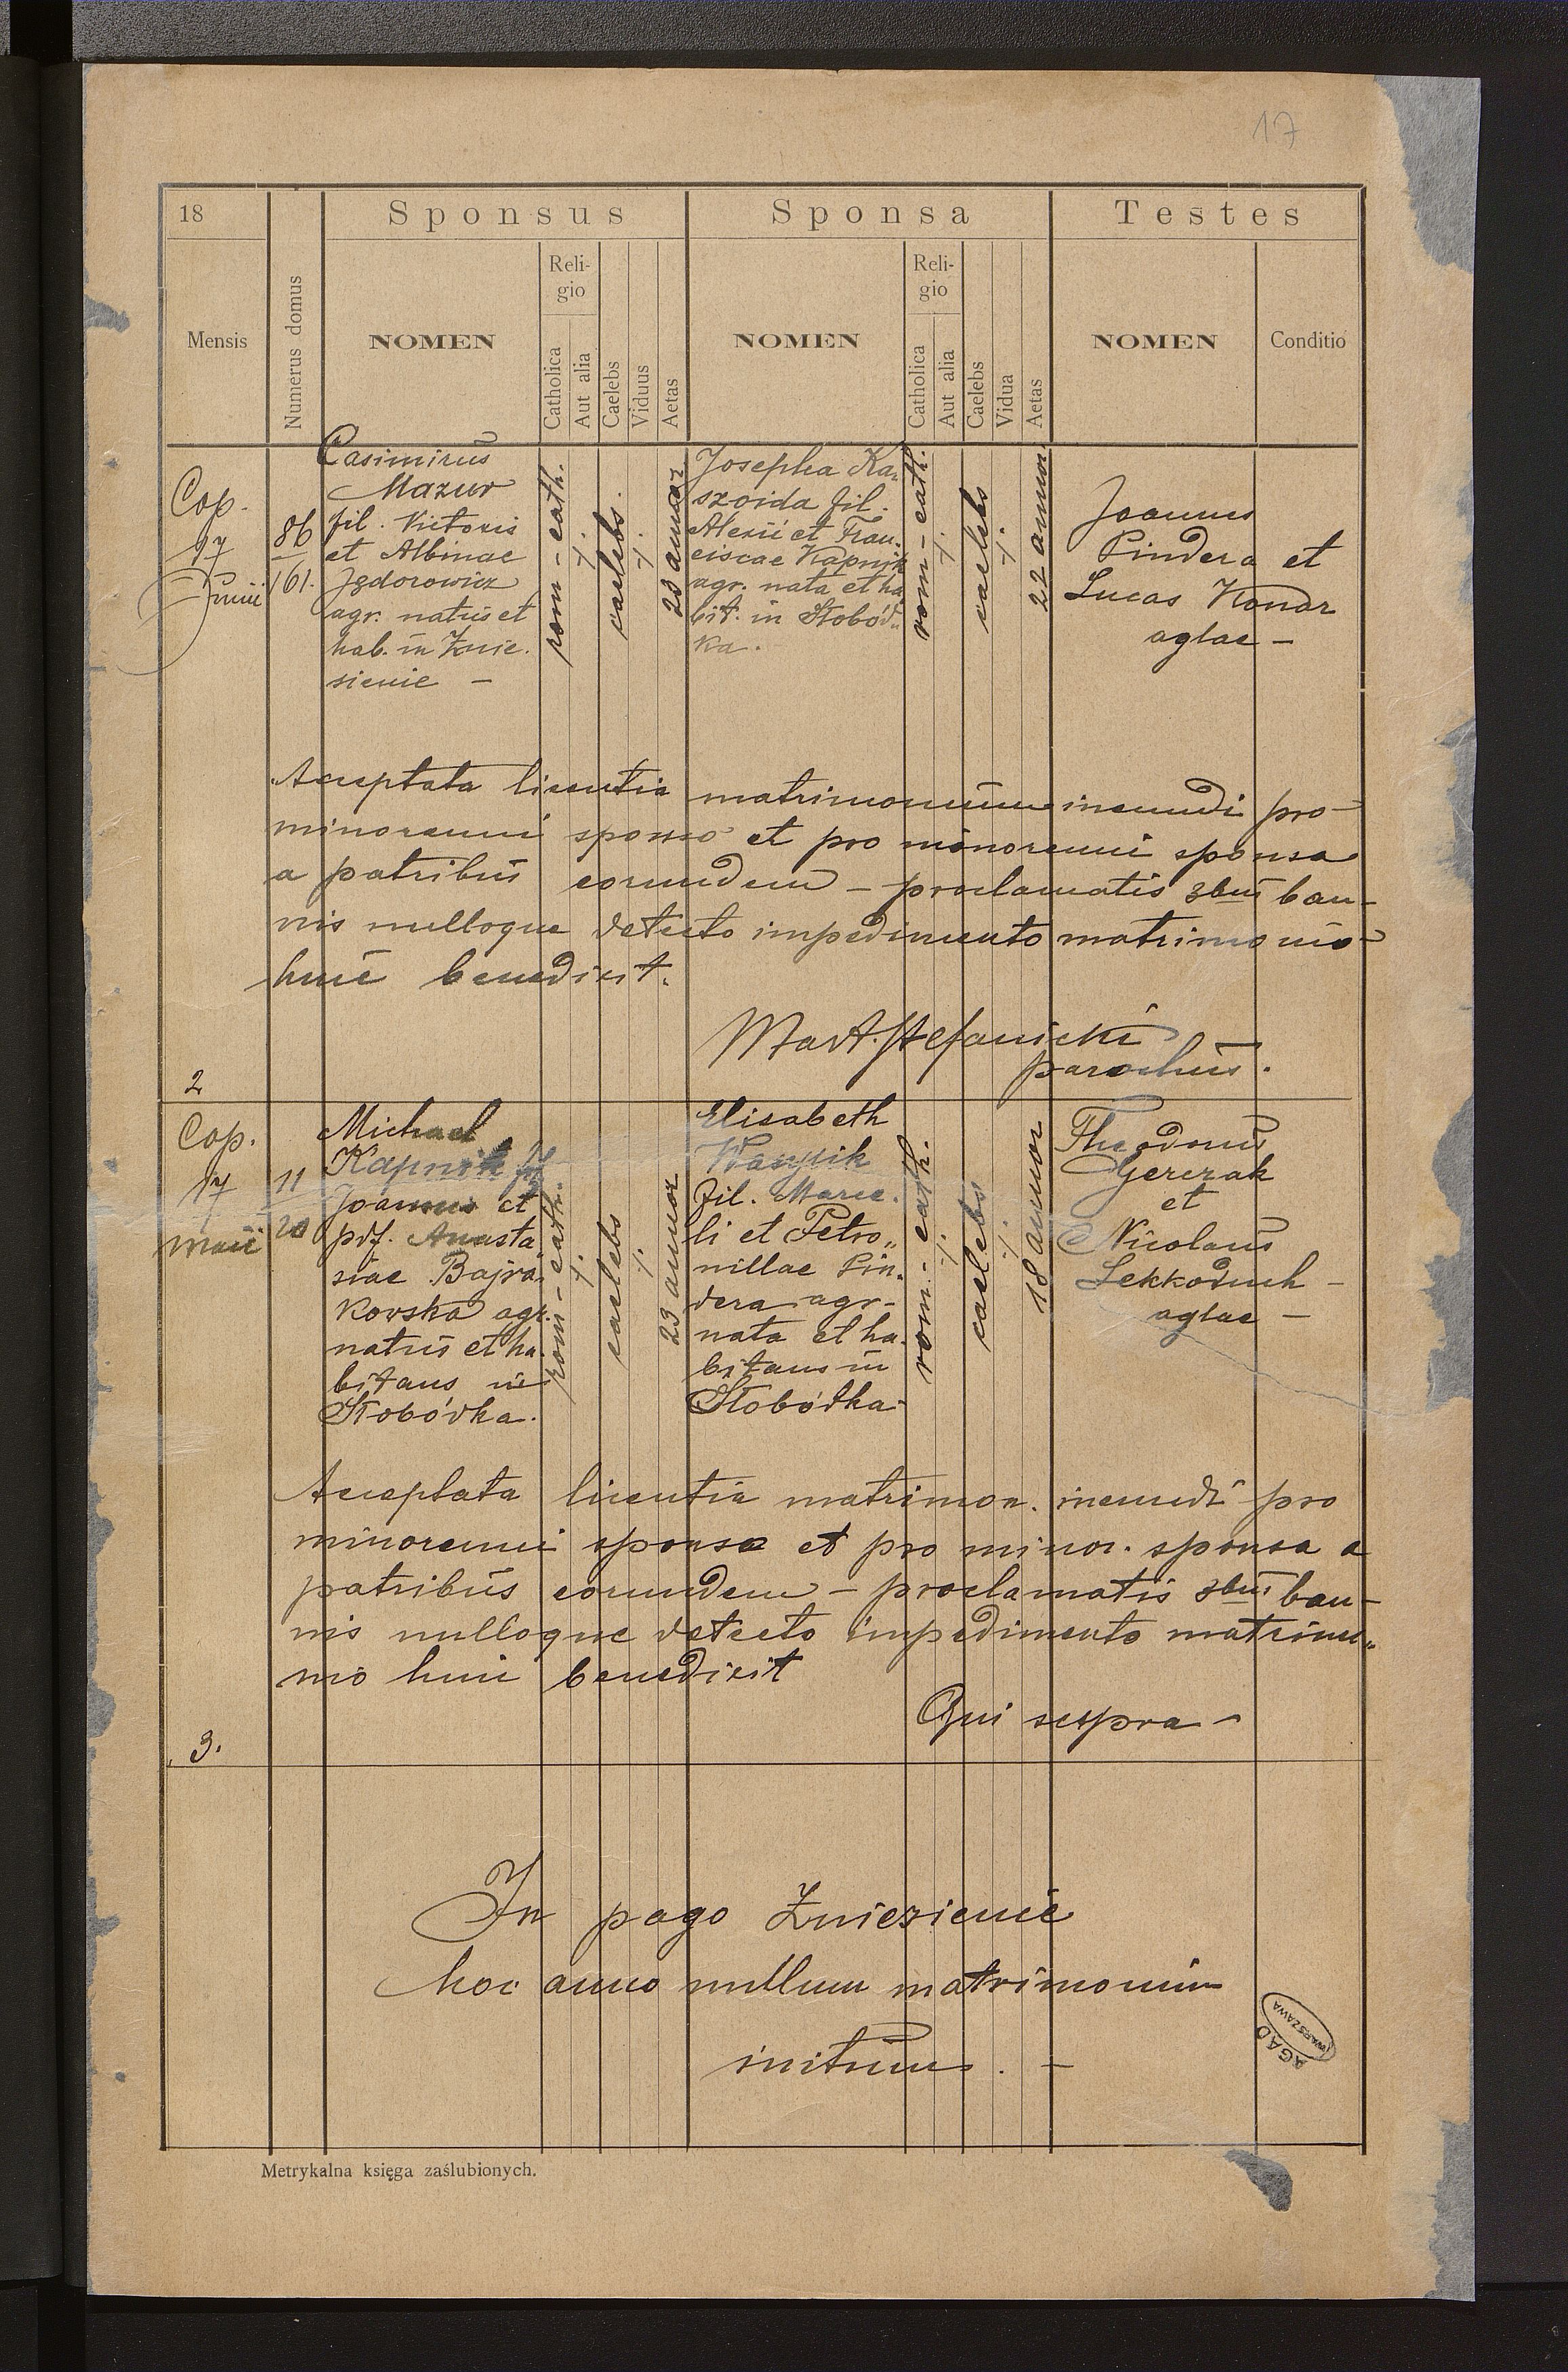 17
18
Sponsus
Sponsa
Testes
Mensis
Numerus domus
NOMEN
Religio
Catholica
Aut alia
Caelebs
Viduus
Aetas
NOMEN
Religio
Catholica
Aut alia
Caelebs
Vidua
Aetas
NOMEN
Conditio
Cop.
17
Junii
86
161.
Casimirus
Mazur
fil. Victoris
et Albinae
Izdorowicz
agr. natus et
hab. in Znie-
sienie –
rom-cath.
caelebs.
23 annor
Josepha Ka-
szoida fil.
Alexii et Fran-
ciscae Kapnik
agr. nata et ha
bit. in Słobód-
ka.
rom-cath.
caelebs
22 annor.
Joannes
Pindera et
Lucas Konar
aglae –
Acceptata licentia matrimonium ineundi pro
minorenni sponso et pro minorenni sponsa
a patribus eorundem – proclamatis 3bus ban-
nis nulloque detecto impedimento matrimonio
huic benedixit.
Mart. Stefanicki
parochus.
2
Cop.
17
maii
11
20
Michael
Kapnik fil
Joannis et
pdf. Anasta„
siae Bajra-
kovska agr.
natus et ha.
bitans in
Słobódka.
rom-cath.
caelebs
23 annor
Elisabeth
Wasylik
fil. Marce.
li et Petro„
nillae Pin.
dera agr.
nata et ha.
bitans in
Słobódka
rom-cath.
caelebs
18 annor
Theodorus
Gerczak
et
Nicolaus
Lekkoduch –
aglae –
Acceptata licentia matrimon. ineundi pro
minorenni sponso et pro minor. sponsa a
patribus eorundem – proclamatis 3bus ban-
nis nulloque detecto impedimento matrimo„
nio huic benedixit
Qui supra –
3.
In pago Zniezienie
hoc anno nullum matrimonium
initum. –
AGAD
WARSZAWA
Metrykalna księga zaślubionych.